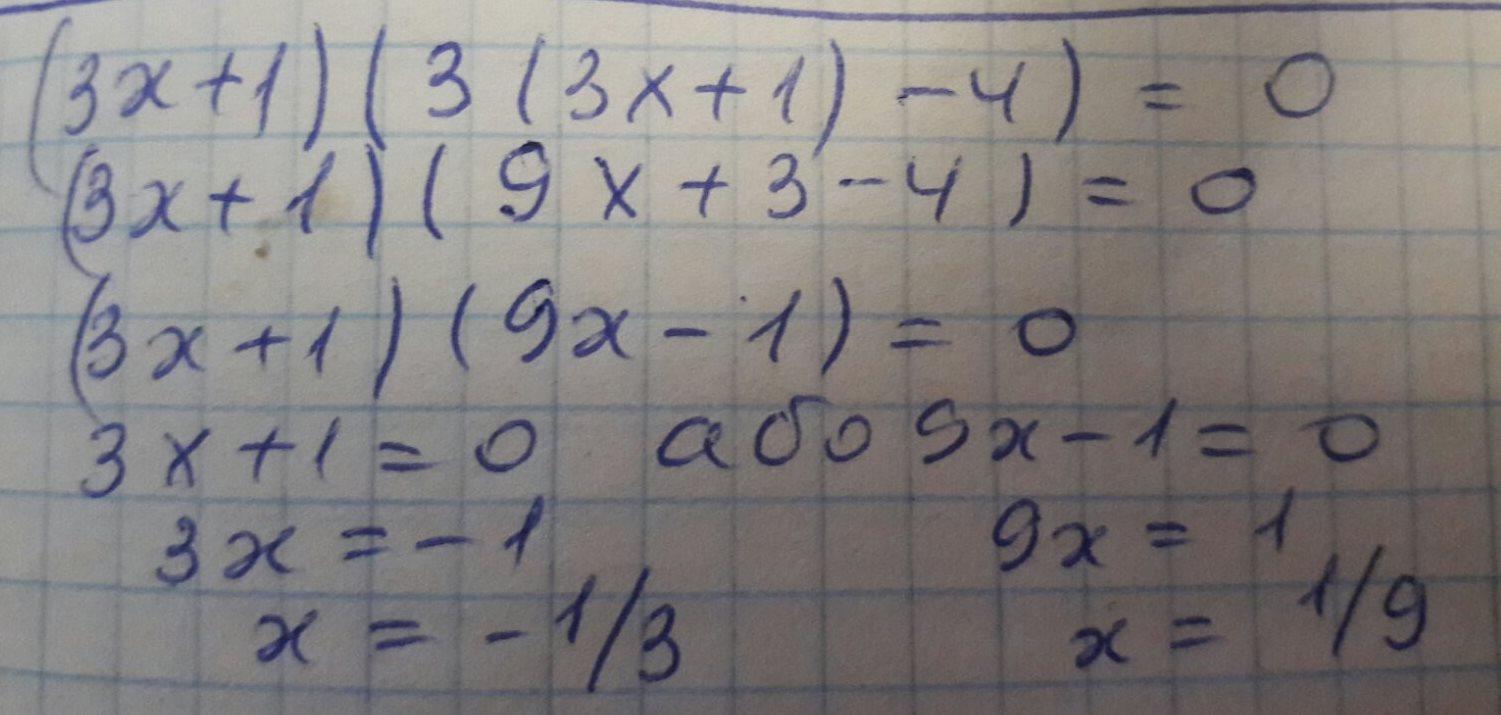 (3x+1)(3(3x+1)-4)=0
(3x+1)(9x+3-4)=0
(3x+1)(9x-1)=0
3x+1=0 або 9x-1=0
3x=-1 9x=1
x=-1/3 x=1/9